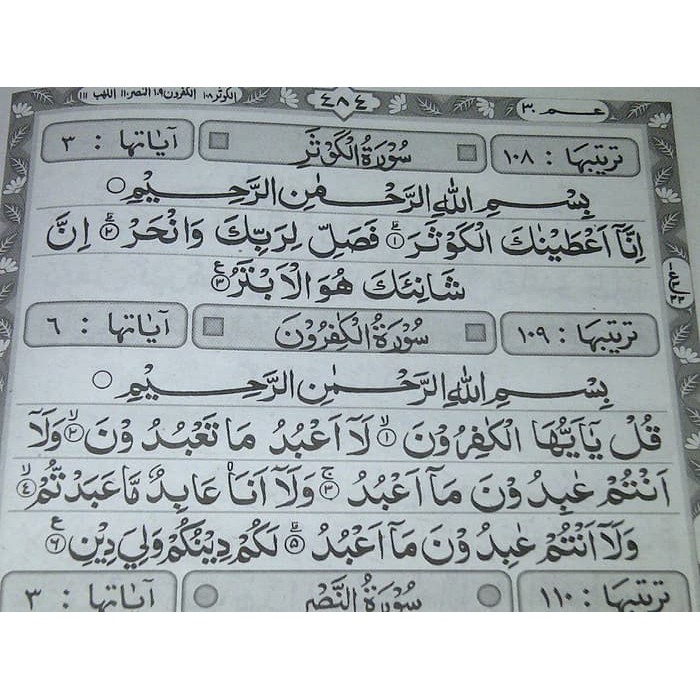 الكوثر ١٠٨ الكفرون ١٠٩ النصر ١١٠ اللهب ١١١
٤٨٤
عـم ٣٠
ترتيبها : ١٠٨ سُوْرَةُ الْكَوْثَرِ آياتها : ٣
بِسْمِ اللهِ الرَّحْمٰنِ الرَّحِيْمِ
اِنَّآ اَعْطَيْنٰكَ الْكَوْثَرَ ۗ ١ فَصَلِّ لِرَبِّكَ وَانْحَرْ ۗ ٢ اِنَّ
شَانِئَكَ هُوَ الْاَبْتَرُ ࣖ ٣
ترتيبها : ١٠٩ سُوْرَةُ الْكٰفِرُوْنَ آياتها : ٦
بِسْمِ اللهِ الرَّحْمٰنِ الرَّحِيْمِ
قُلْ يٰٓاَيُّهَا الْكٰفِرُوْنَ ۙ ١ لَآ اَعْبُدُ مَا تَعْبُدُوْنَ ۙ ٢ وَلَآ
اَنْتُمْ عٰبِدُوْنَ مَآ اَعْبُدُ ۚ ٣ وَلَآ اَنَا۠ عَابِدٌ مَّا عَبَدْتُّمْ ۙ ٤
وَلَآ اَنْتُمْ عٰبِدُوْنَ مَآ اَعْبُدُ ۗ ٥ لَكُمْ دِيْنُكُمْ وَلِيَ دِيْنِ ࣖ ٦
ترتيبها : ١١٠ سُوْرَةُ النَّصْرِ آياتها : ٣